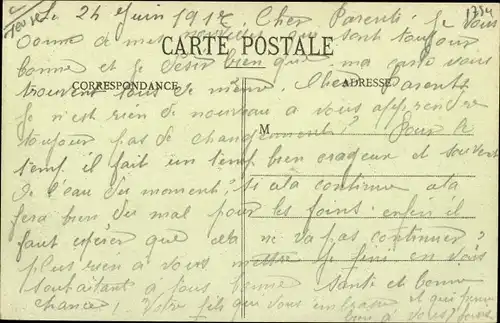 le 24 Juin 1917. Cher Parents. Je vous
donne de mes nouvelles qui sont toujour
CARTE POSTALE
bonne et je désir bien que ma carte vous
CORRESPONDANCE
ADRESSE
trouvent tous de même. Cher Parents
je n'est rien de nouveau a vous apprendre
toujour pas de changement? Pour le
M
temp il fait un temp bien orageux et souvent
de l'eau du moment? Si ala continue ala
fera bien du mal pour les foins. enfin il
faut espérer que cela ne va pas continuer?
plus rien à vous mettre je fini en vous
souhaitant a tous bonne Santé et bonne
chance! Votre fils qui vous embrasse et qui pense
bien à vous